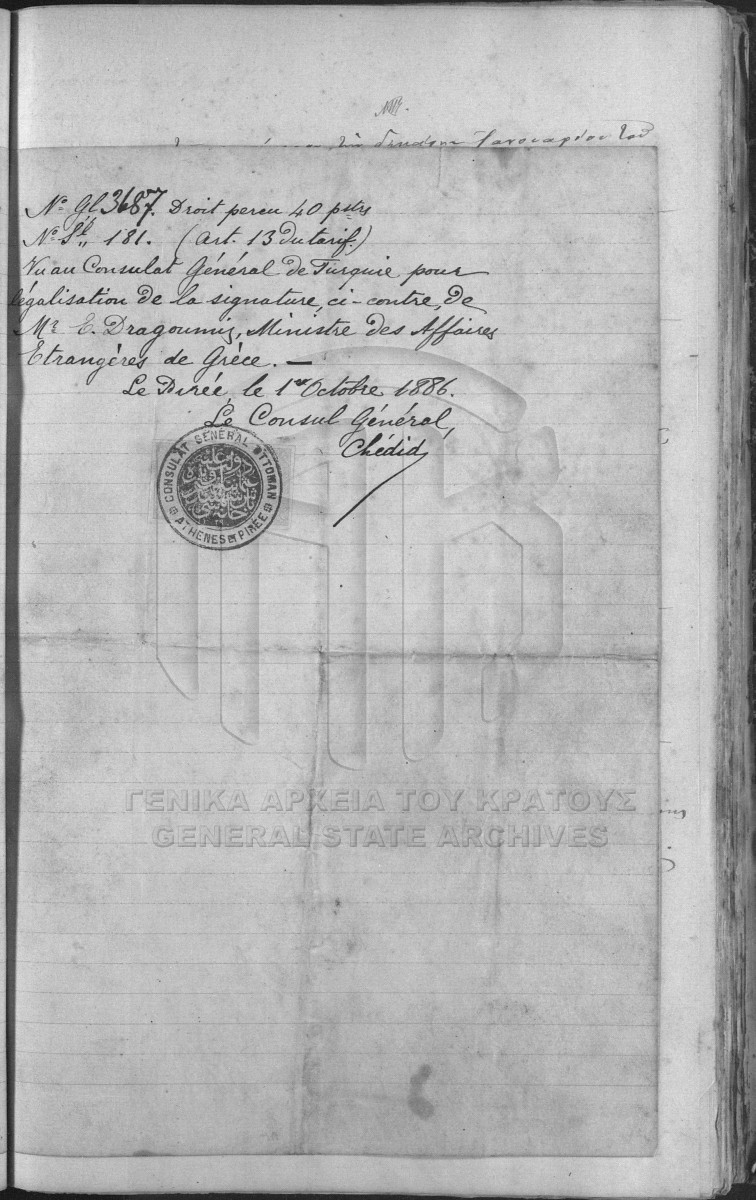 Nº Gl 3687. Droit percu 40 pstrs
Nº Sl 181. (Art. 13 du tarif.)
Vu au Consulat Général de Turquie pour
légalisation de la signature, ci-contre, de
Mr E. Dragoumis, Ministre des Affaires
Etrangères de Grèce. —
Le Pirée, le 1er Octobre 1886.
Le Consul Général,
Chédid
CONSULAT GÉNÉRAL OTTOMAN
ATHENES ET PIRÉE
ΓΕΝΙΚΑ ΑΡΧΕΙΑ ΤΟΥ ΚΡΑΤΟΥΣ
GENERAL STATE ARCHIVES